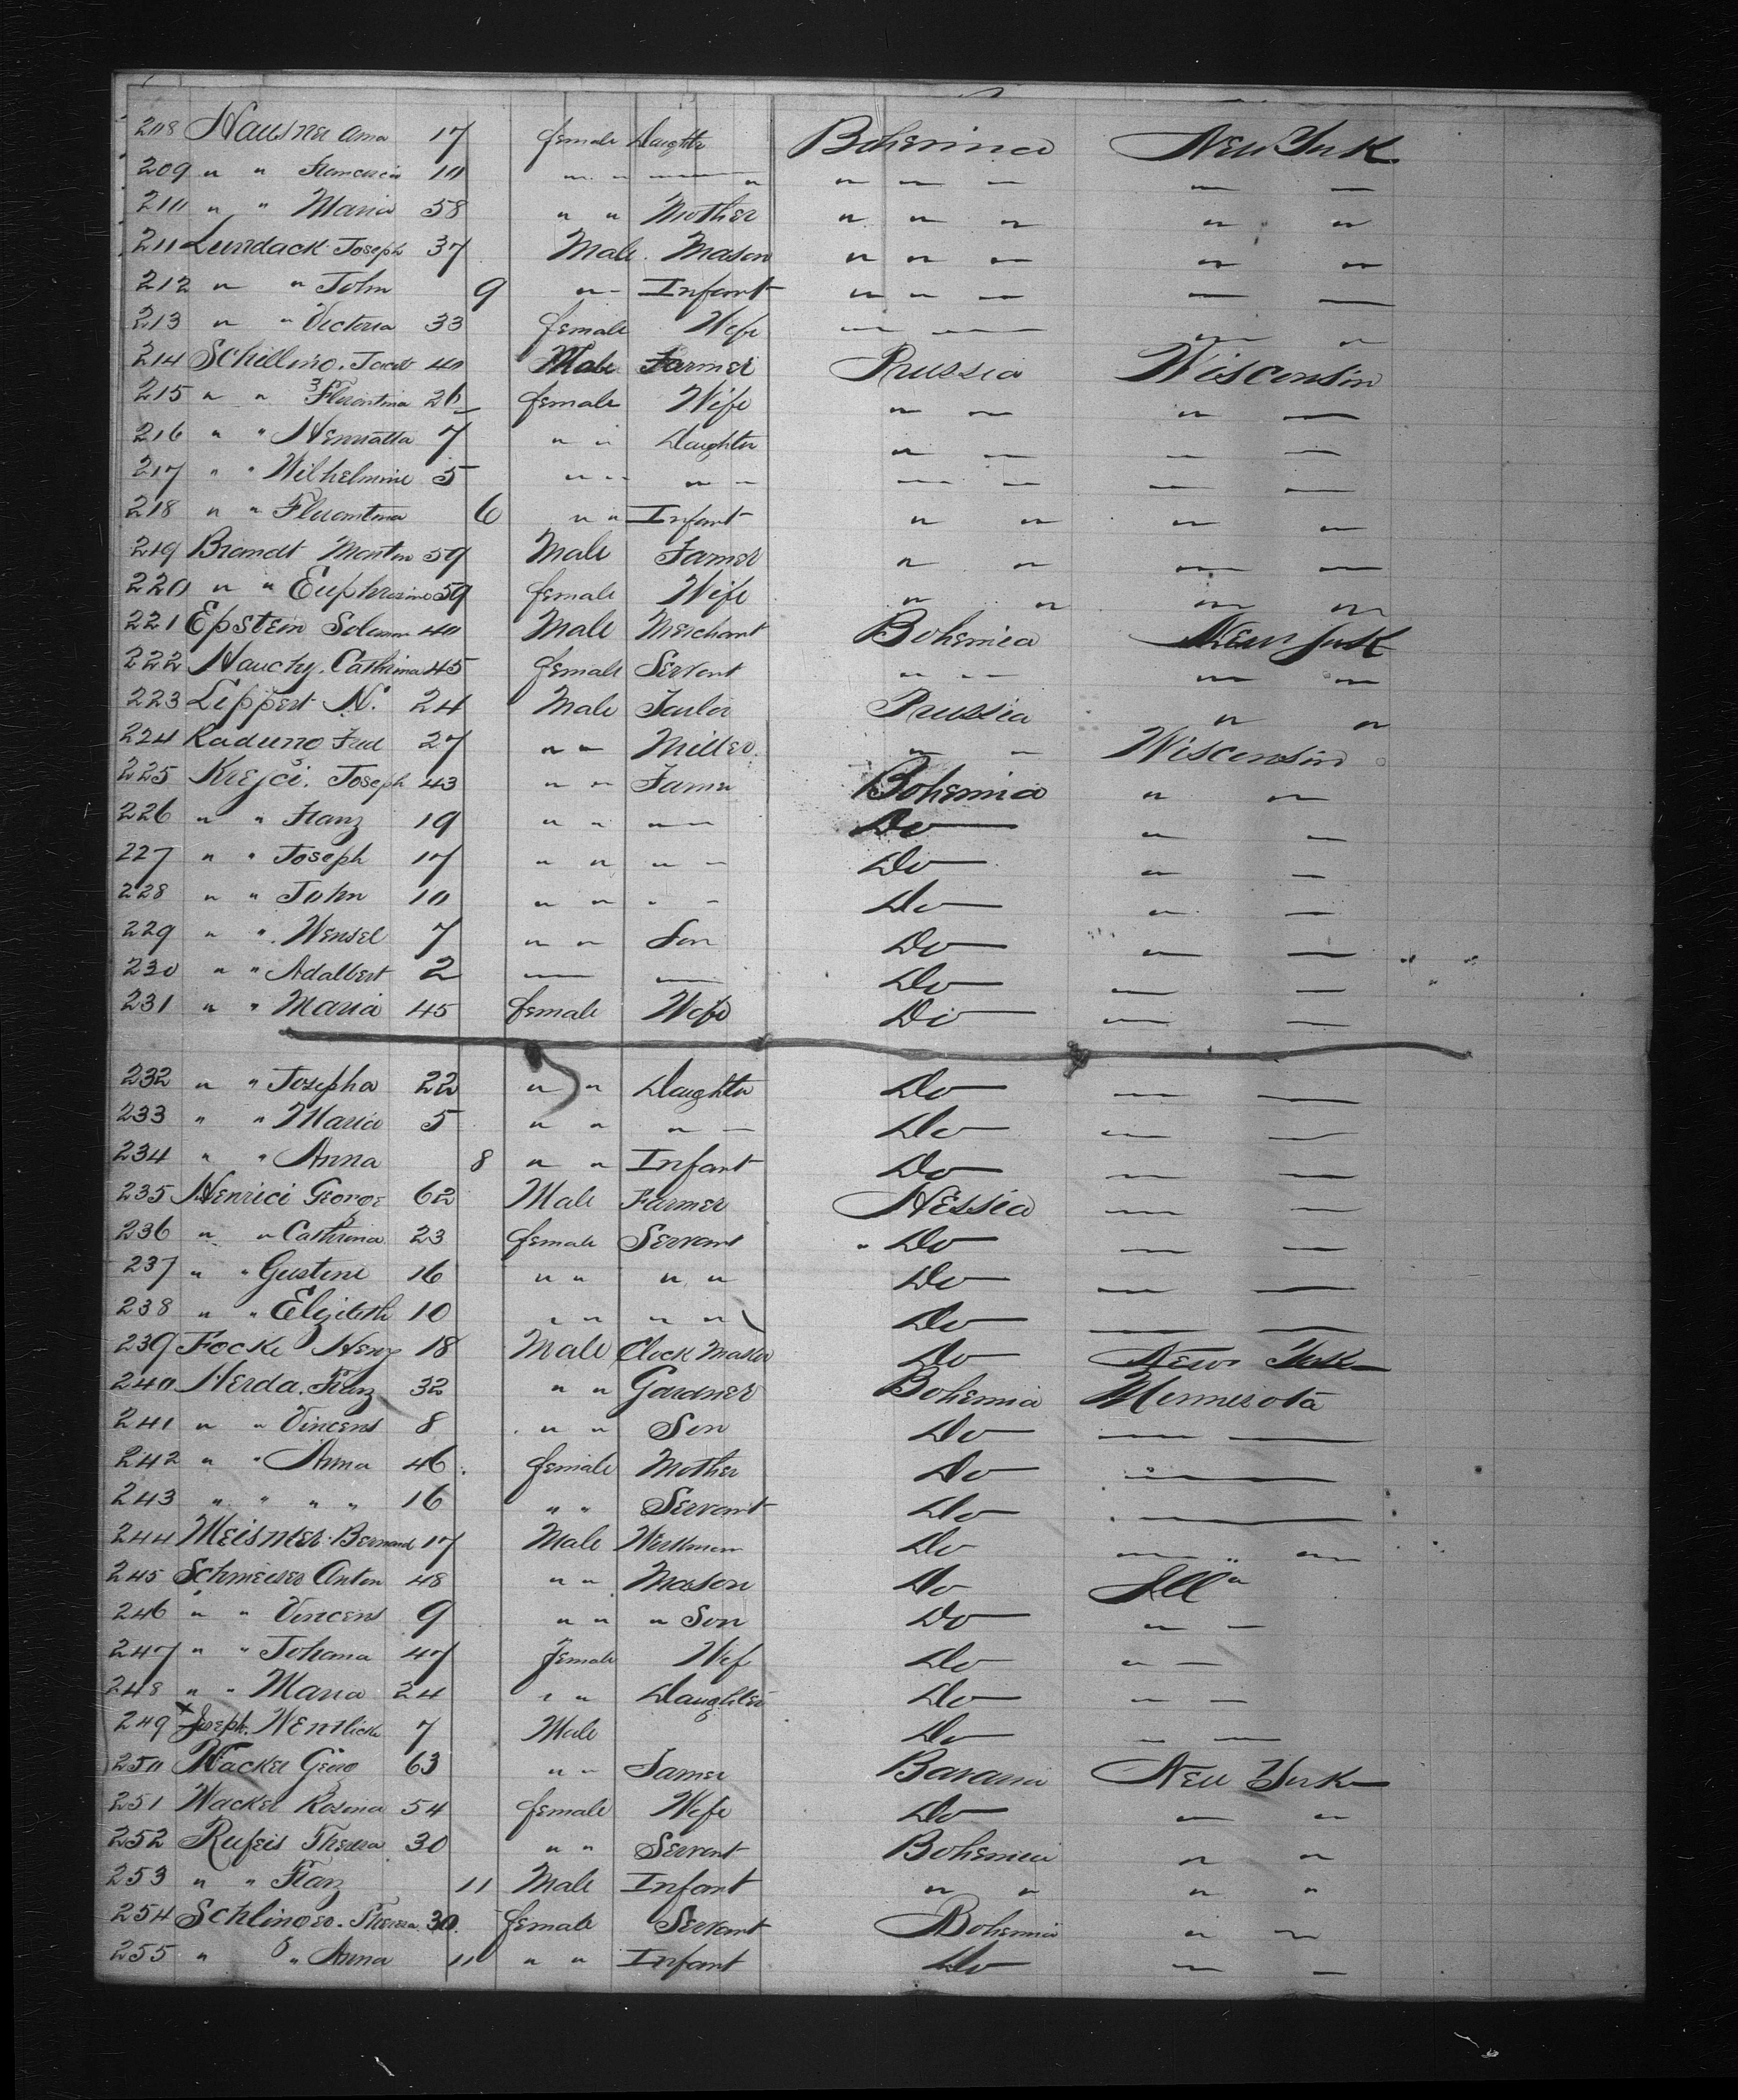 208 Hausner Anna 17 female Daughter Bohemia New York
209 " " Francisca 10 " " " " " " " " "
210 " " Maria 58 " " Mother " " " " "
211 Lundack Joseph 37 Male Mason " " " " "
212 " " John 9 " Infant " " " " "
213 " " Victoria 33 female Wife " " " "
214 Schelling Jacob 40 Male Farmer Prussia Wisconsin
215 " " Florentina 26 female Wife " " " "
216 " " Henriatta 7 " " Daughter " " " "
217 " " Wilhelmine 5 " " " " " " " "
218 " " Florentina 6 " " Infant " " " "
219 Brandt Martin 59 Male Farmer " " " "
220 " " Euphrosine 59 female Wife " " " "
221 Epstein Soloman 40 Male Merchant Bohemia New York
222 Cathrina 45 female Servent " " " "
223 Leppert N. 24 Male Tailor Prussia " "
224 Raduno Fred 27 " " Miller " " Wisconsin
225 Krejci Joseph 43 " " Farmer Bohemia " "
226 " " Franz 19 " " " " Do " "
227 " " Joseph 17 " " " " Do " "
228 " " John 10 " " " " Do " "
229 " " Wensel 7 " " Son Do " "
230 " " Adalbert 2 — — Do — —
231 " " Maria 45 female Wife Do — —
232 " " Josepha 22 " " Daughter Do — —
233 " " Maria 5 " " " " Do — —
234 " " Anna 8 " " Infant Do — —
235 Henrici George 62 Male Farmer Hessia — —
236 " " Cathrina 23 female Servant Do — —
237 " " Gustine 16 " " " " Do — —
238 " " Elizibeth 10 " " " " Do — —
239 Focke Henry 18 Male Clock Maker Do New York
240 Herda Franz 32 " " Gardner Bohemia Minnesota
241 " " Vincens 8 " " Son Do — —
242 " " Anna 46 female Mother Do — —
243 " " " " 16 " " Servant Do — —
244 Meisner Bernard 17 Male Workman Do — —
245 Schmeiser Anton 48 " " Mason Do Ill"
246 " " Vincens 9 " " " Son Do " —
247 " " Johana 47 female Wife Do " —
248 " " Maria 24 " " Daughter Do — —
249 Joseph Wentlick 7 Male Do — —
250 Wacker Georg 63 " " Farmer Bavaria New York
251 Wacker Rosina 54 female Wife Do " "
252 Rufeis Theresa 30 " " Servent Bohemia " "
253 " " Franz 11 Male Infant " " " "
254 Schlinger Theresa 30 female Servant Bohemia " "
255 " " Anna 11 " " Infant Do — —